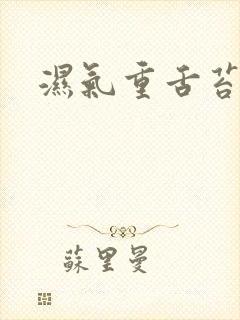 濕氣重舌苔
蘇里曼